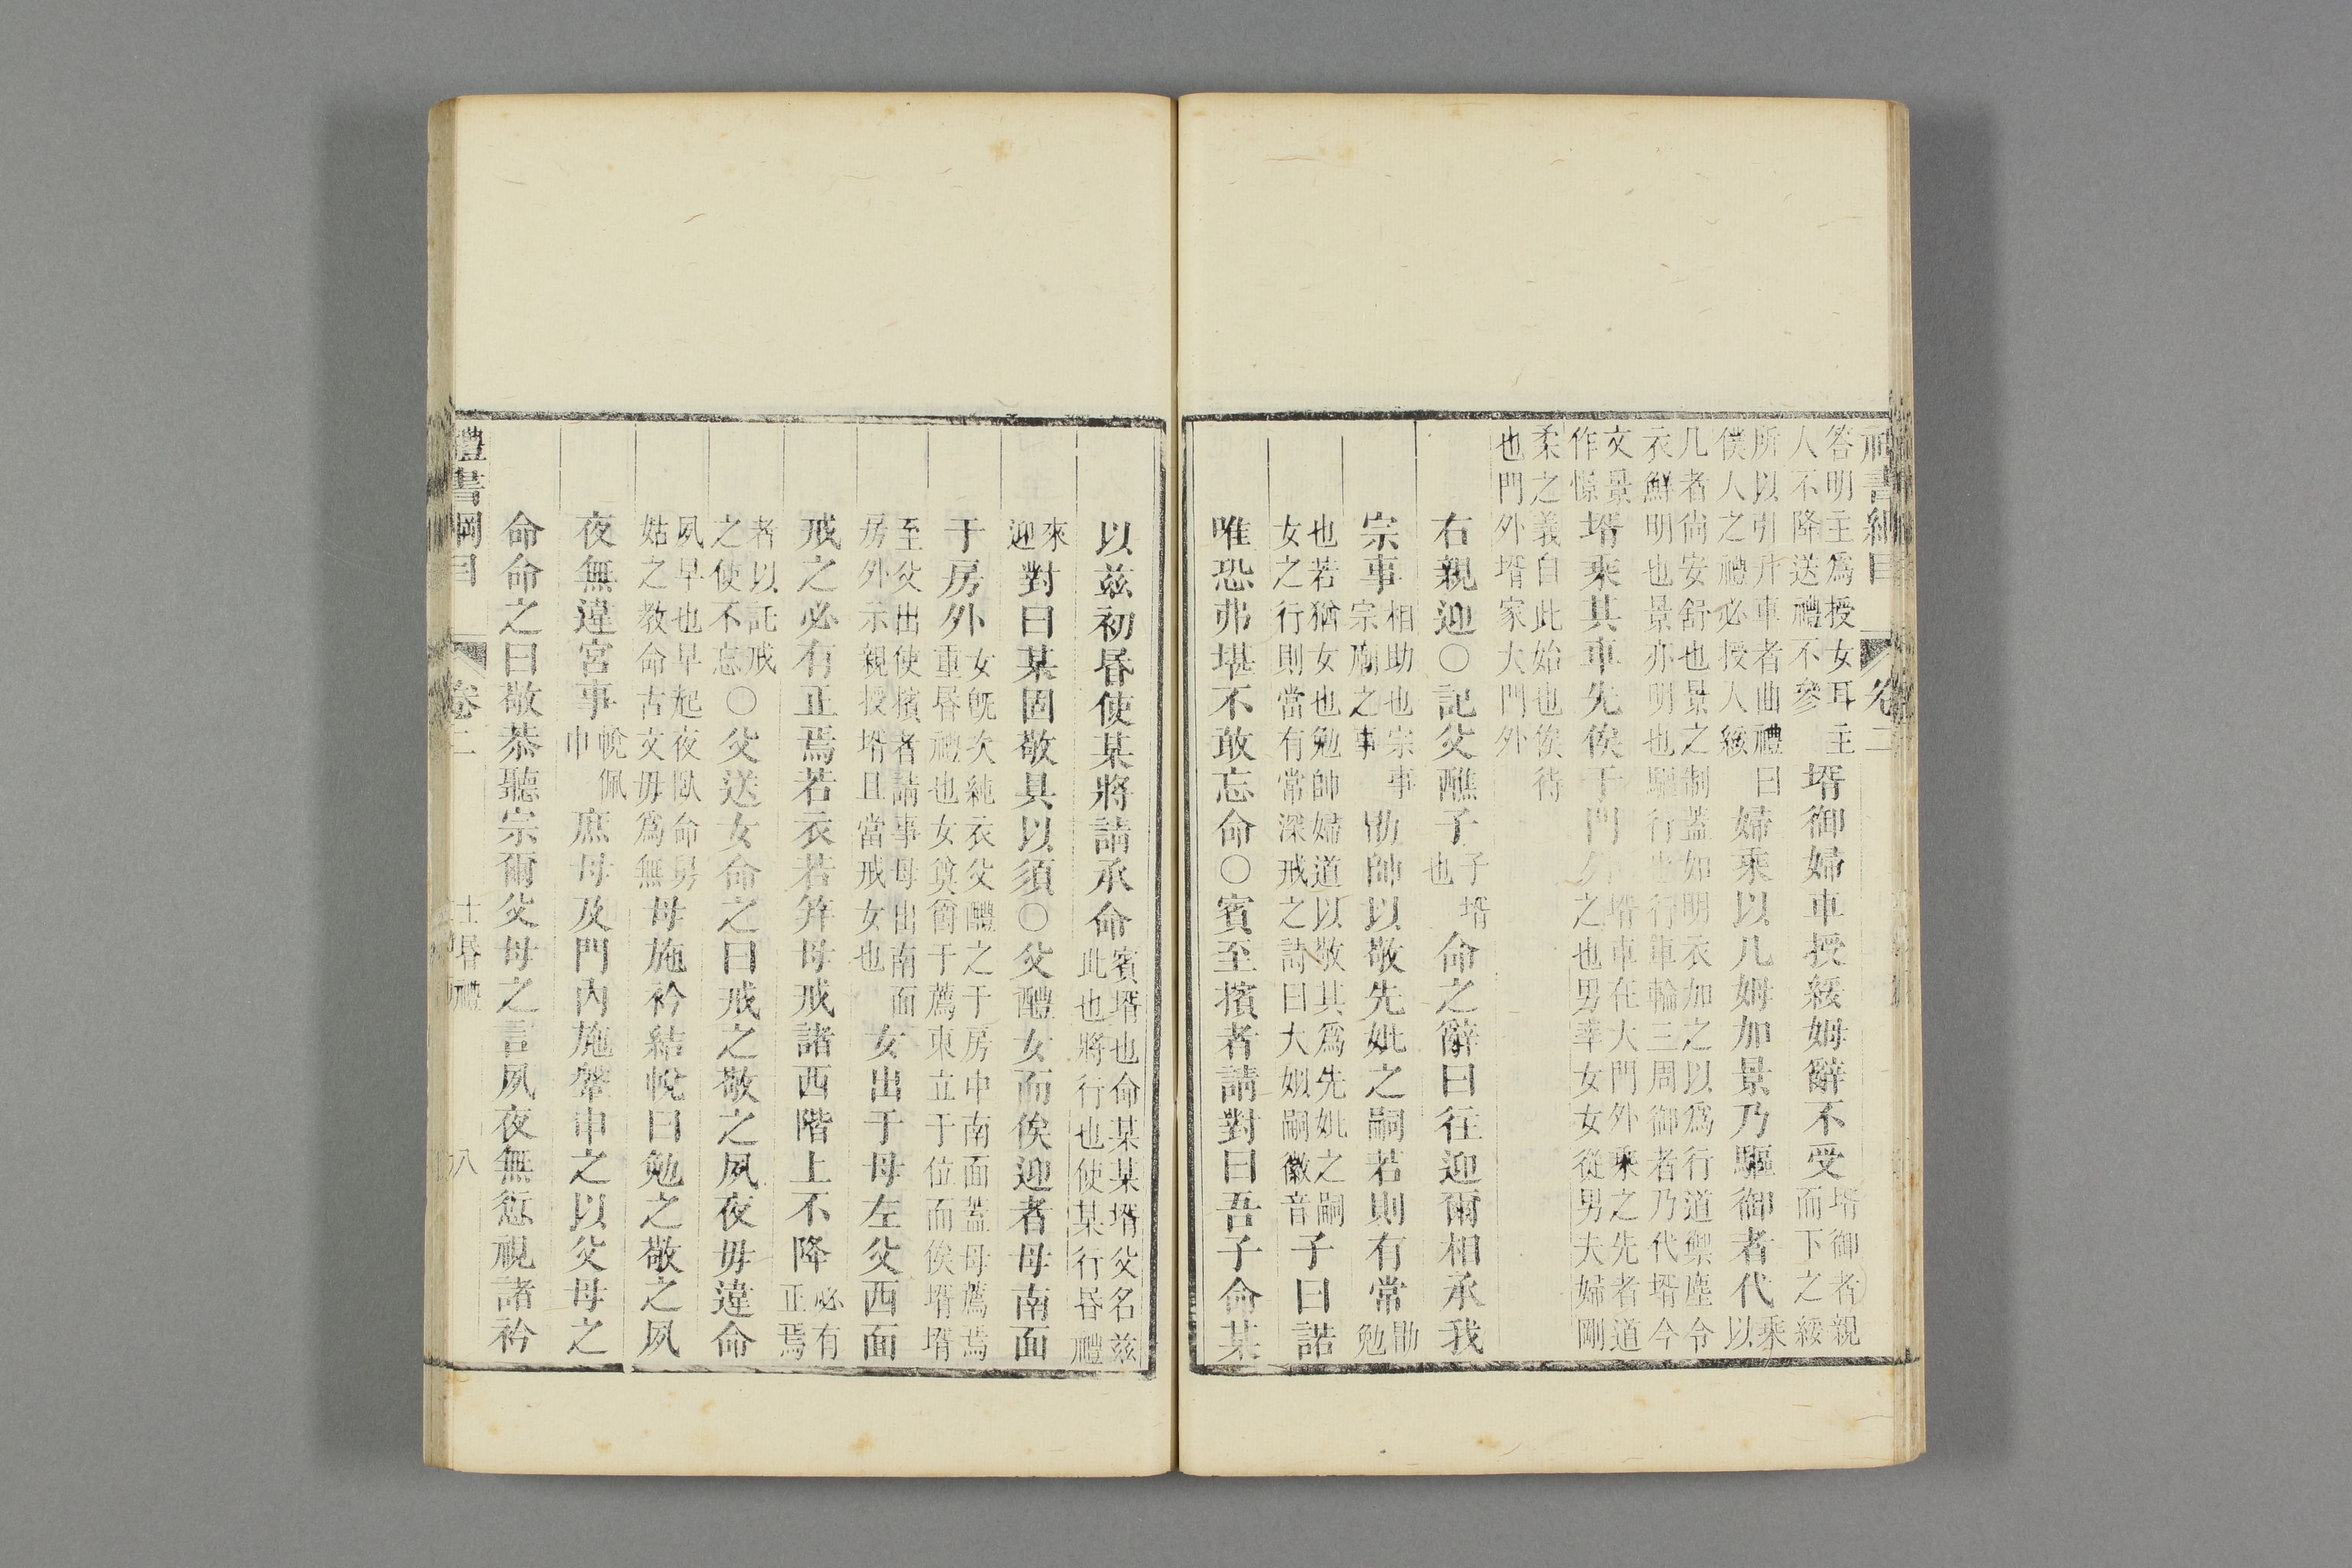 禮書綱目 卷二
答明主爲授女耳主人不降送禮不參壻御婦車授綏姆辭不受壻御者親而下之綏
所以引升車者曲禮曰僕人之禮必授人綏婦乘以几姆加景乃驅御者代乘以
几者尙安舒也景之制蓋如明衣加之以爲行道禦塵令衣鮮明也景亦明也驅行也行車輪三周御者乃代壻今
文景作憬壻乘其車先俟于門外壻車在大門外乘之先者道之也男率女女從男夫婦剛
柔之義自此始也俟待也門外壻家大門外
右親迎○記父醮子子壻也命之辭曰往迎爾相承我
宗事相助也宗事宗廟之事勖帥以敬先妣之嗣若則有常勖勉
也若猶女也勉帥婦道以敬其爲先妣之嗣女之行則當有常深戒之詩曰大姒嗣徽音子曰諾
唯恐弗堪不敢忘命○賓至擯者請對曰吾子命某
以兹初昏使某將請承命賓壻也命某某壻父名兹此也將行也使某行昏禮
來迎對曰某固敬具以須○父醴女而俟迎者母南面
于房外女旣次純衣父醴之于房中南面蓋母薦焉重昏禮也女奠爵于薦東立于位而俟壻壻
至父出使擯者請事母出南面房外示親授壻且當戒女也女出于母左父西面
戒之必有正焉若衣若笄母戒諸西階上不降必有正焉
者以託戒之使不忘○父送女命之曰戒之敬之夙夜毋違命
夙早也早起夜臥命舅姑之教命古文毋爲無母施衿結帨曰勉之敬之夙
夜無違宮事帨佩巾庶母及門內施鞶申之以父母之
命命之曰敬恭聽宗爾父母之言夙夜無愆視諸衿
禮書綱目 卷二 士昏禮 八